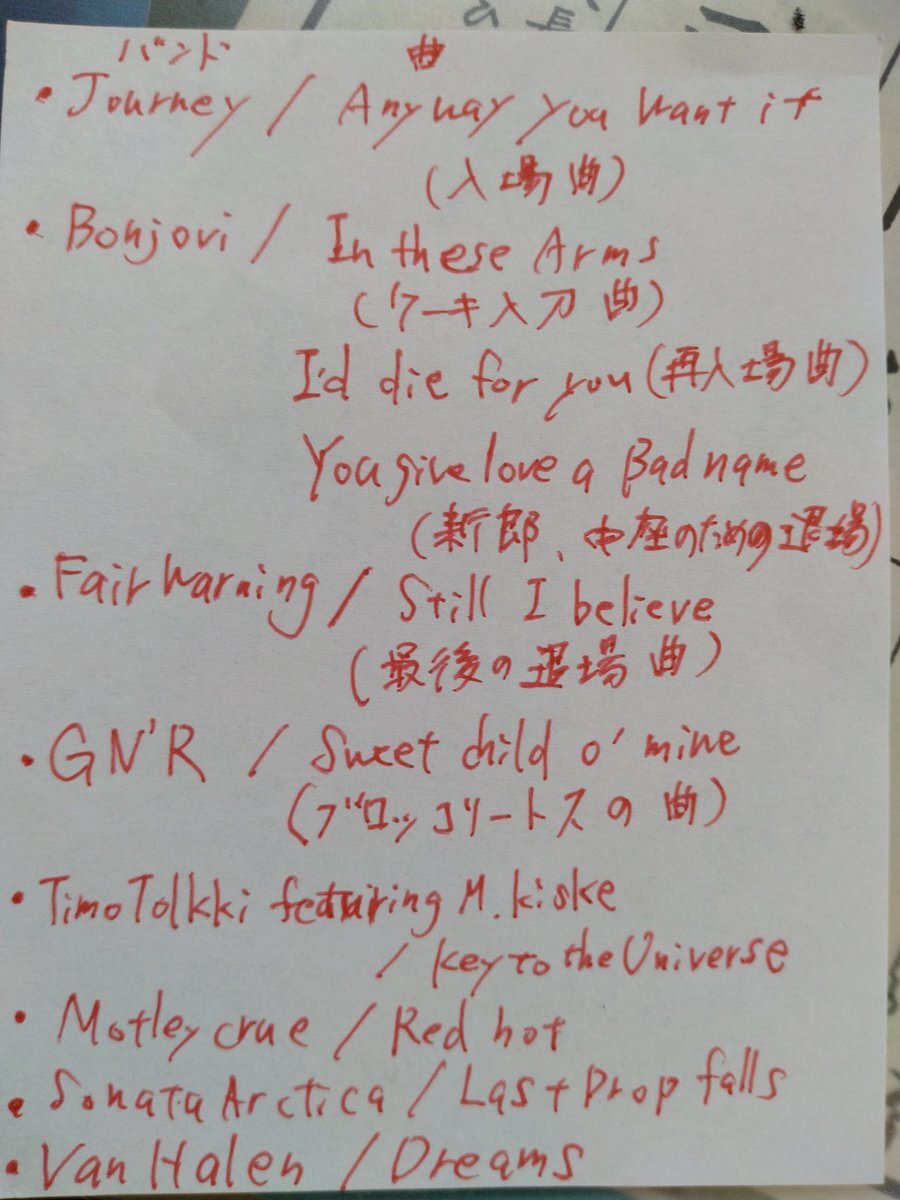 バンド 曲
・Journey / Anyway you want it
(入場曲)
・Bonjovi / In these Arms
(ケーキ入刀曲)
I'd die for you (再入場曲)
You give love a Bad name
(新郎、中座のための退場)
・Fair Warning / Still I believe
(最後の退場曲)
・GN'R / Sweet child o' mine
(ブロッコリートスの曲)
・Timo Tolkki featuring M. kiske
/ key to the Universe
・Motley crue / Red hot
・Sonata Arctica / Last Drop falls
・Van Halen / Dreams